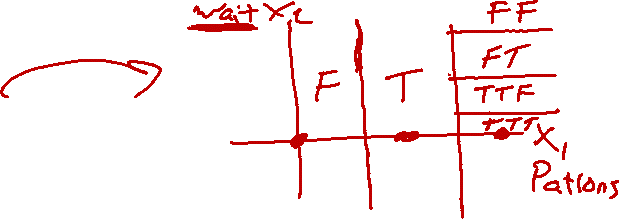 wait X₂
FF
F T FT
TTF
TTT X₁
Patrons